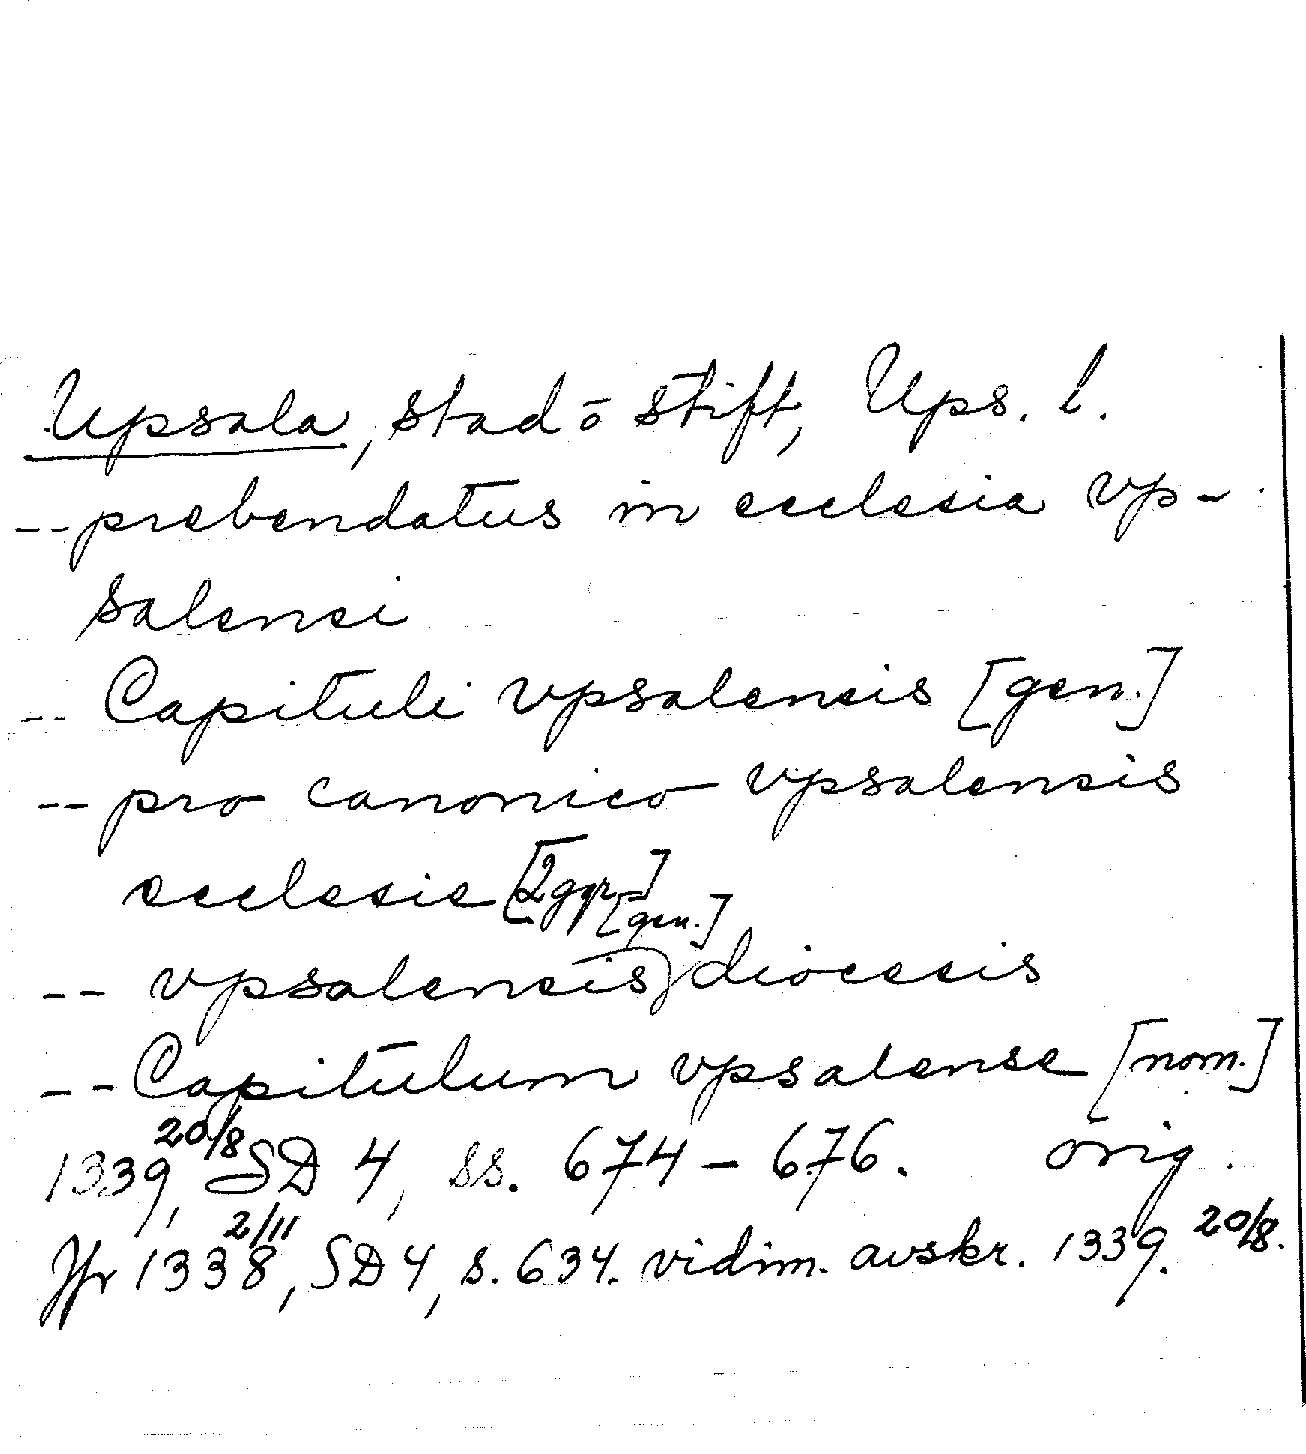 Upsala, stad o stift, Ups. l.
-- prebendatus in ecclesia vp-
salensi
-- Capituli vpsalensis [gen.]
-- pro canonico vpsalensis
ecclesie [2 ggr]
[gen.]
-- vpsalensis diocesis
-- Capitulum vpsalense [nom.]
1339 20/8, SD 4, ss. 674-676. orig.
Jfr 1338 2/11, SD 4, s. 634. vidim. avskr. 1339. 20/8.